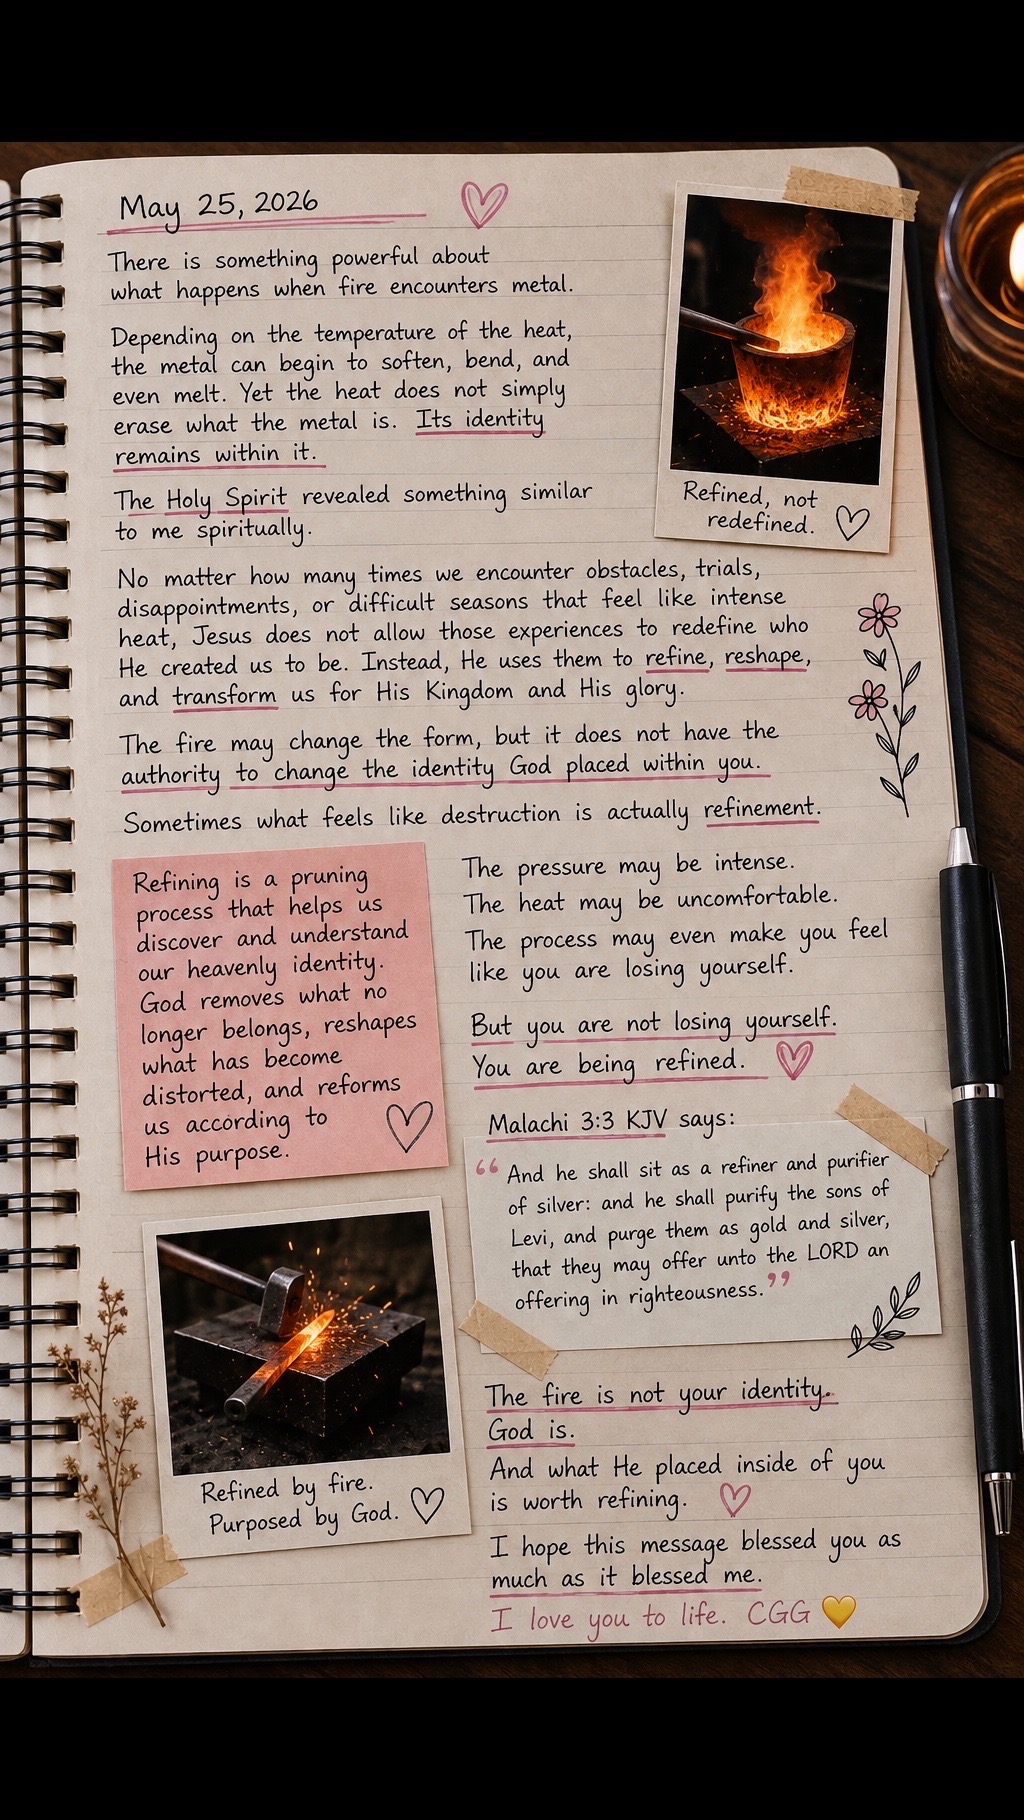 May 25, 2026
There is something powerful about
what happens when fire encounters metal.
Depending on the temperature of the heat,
the metal can begin to soften, bend, and
even melt. Yet the heat does not simply
erase what the metal is. Its identity
remains within it.
Refined, not
redefined.
The Holy Spirit revealed something similar
to me spiritually.
No matter how many times we encounter obstacles, trials,
disappointments, or difficult seasons that feel like intense
heat, Jesus does not allow those experiences to redefine who
He created us to be. Instead, He uses them to refine, reshape,
and transform us for His Kingdom and His glory.
The fire may change the form, but it does not have the
authority to change the identity God placed within you.
Sometimes what feels like destruction is actually refinement.
Refining is a pruning
process that helps us
discover and understand
our heavenly identity.
God removes what no
longer belongs, reshapes
what has become
distorted, and reforms
us according to
His purpose.
The pressure may be intense.
The heat may be uncomfortable.
The process may even make you feel
like you are losing yourself.
But you are not losing yourself.
You are being refined.
Malachi 3:3 KJV says:
“And he shall sit as a refiner and purifier
of silver: and he shall purify the sons of
Levi, and purge them as gold and silver,
that they may offer unto the LORD an
offering in righteousness.”
Refined by fire.
Purposed by God.
The fire is not your identity.
God is.
And what He placed inside of you
is worth refining.
I hope this message blessed you as
much as it blessed me.
I love you to life. CGG 💛